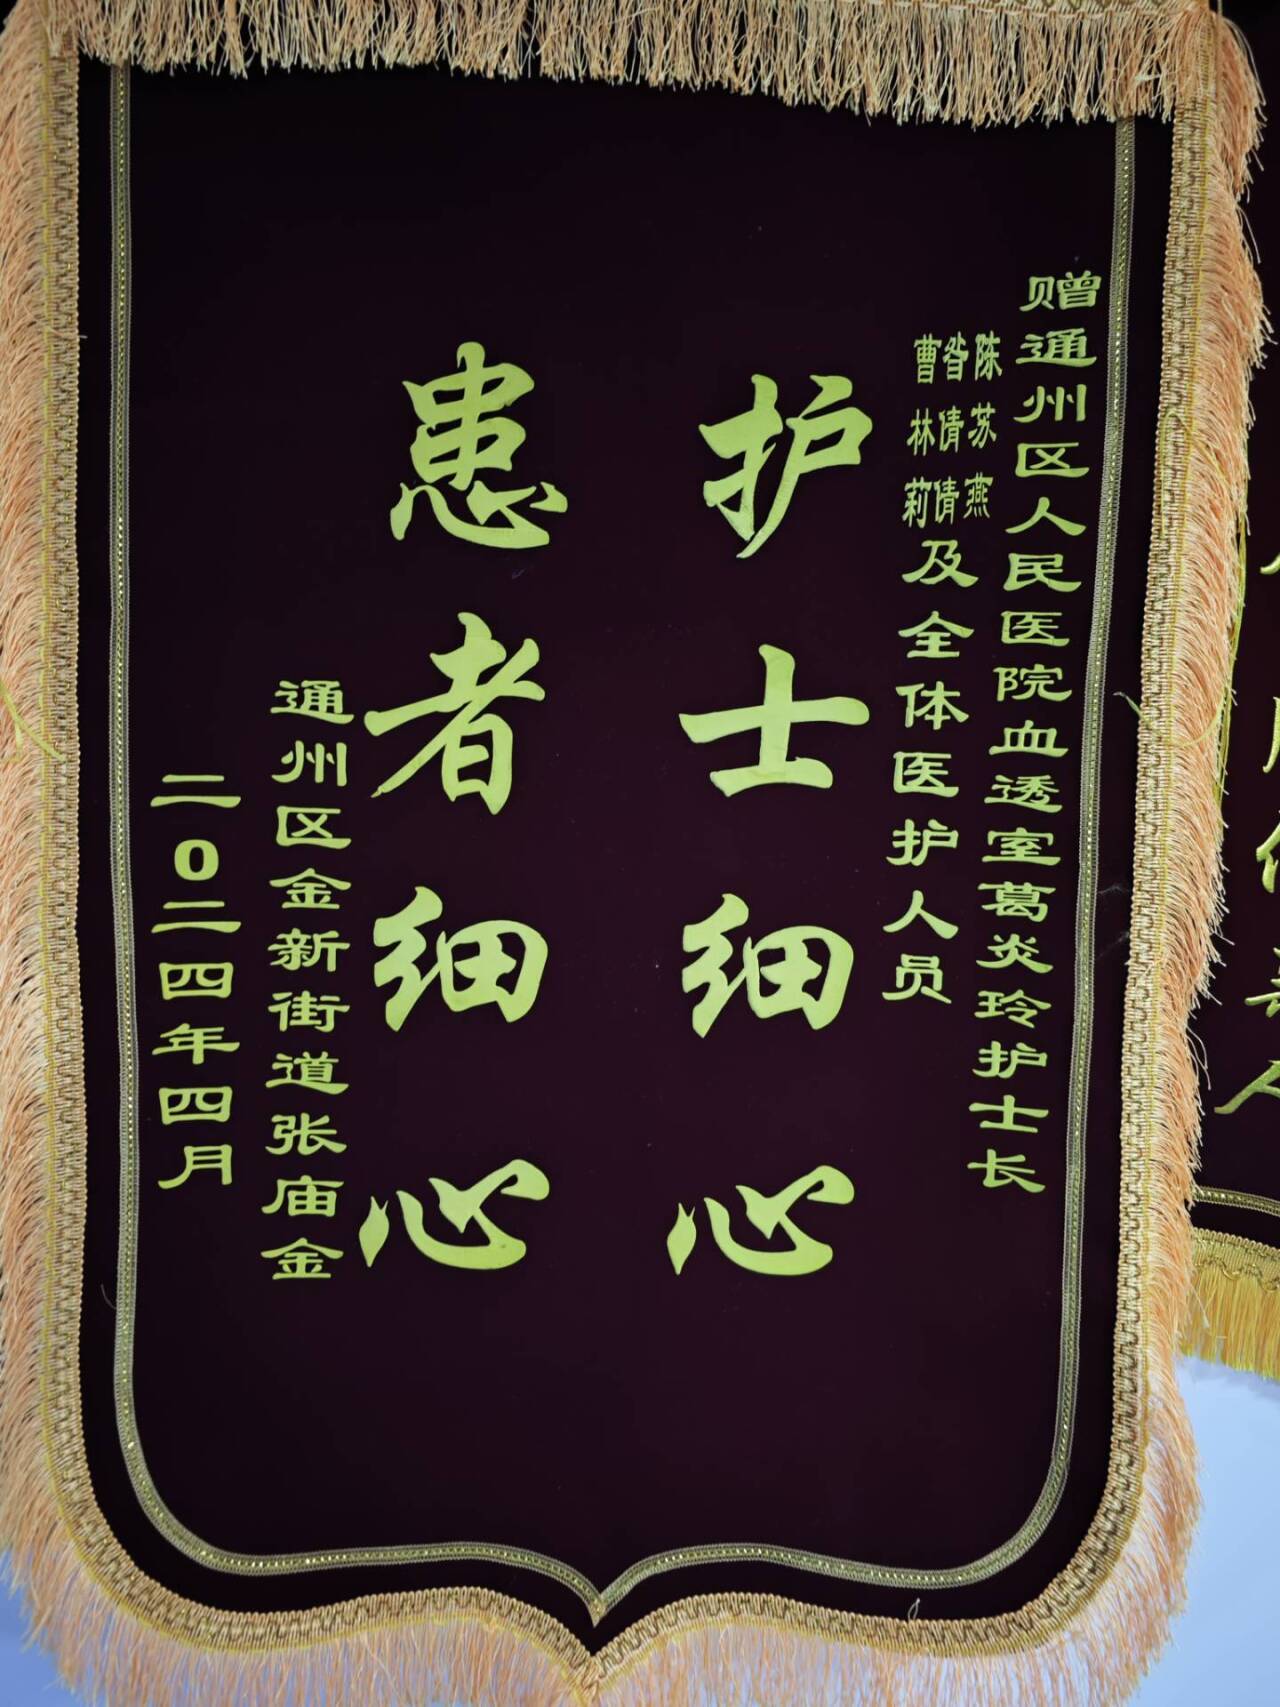 赠通州区人民医院血透室葛炎玲护士长
陈苏燕
昝倩倩
曹林莉
及全体医护人员
护士细心
患者细心
通州区金新街道张庙金
二0二四年四月